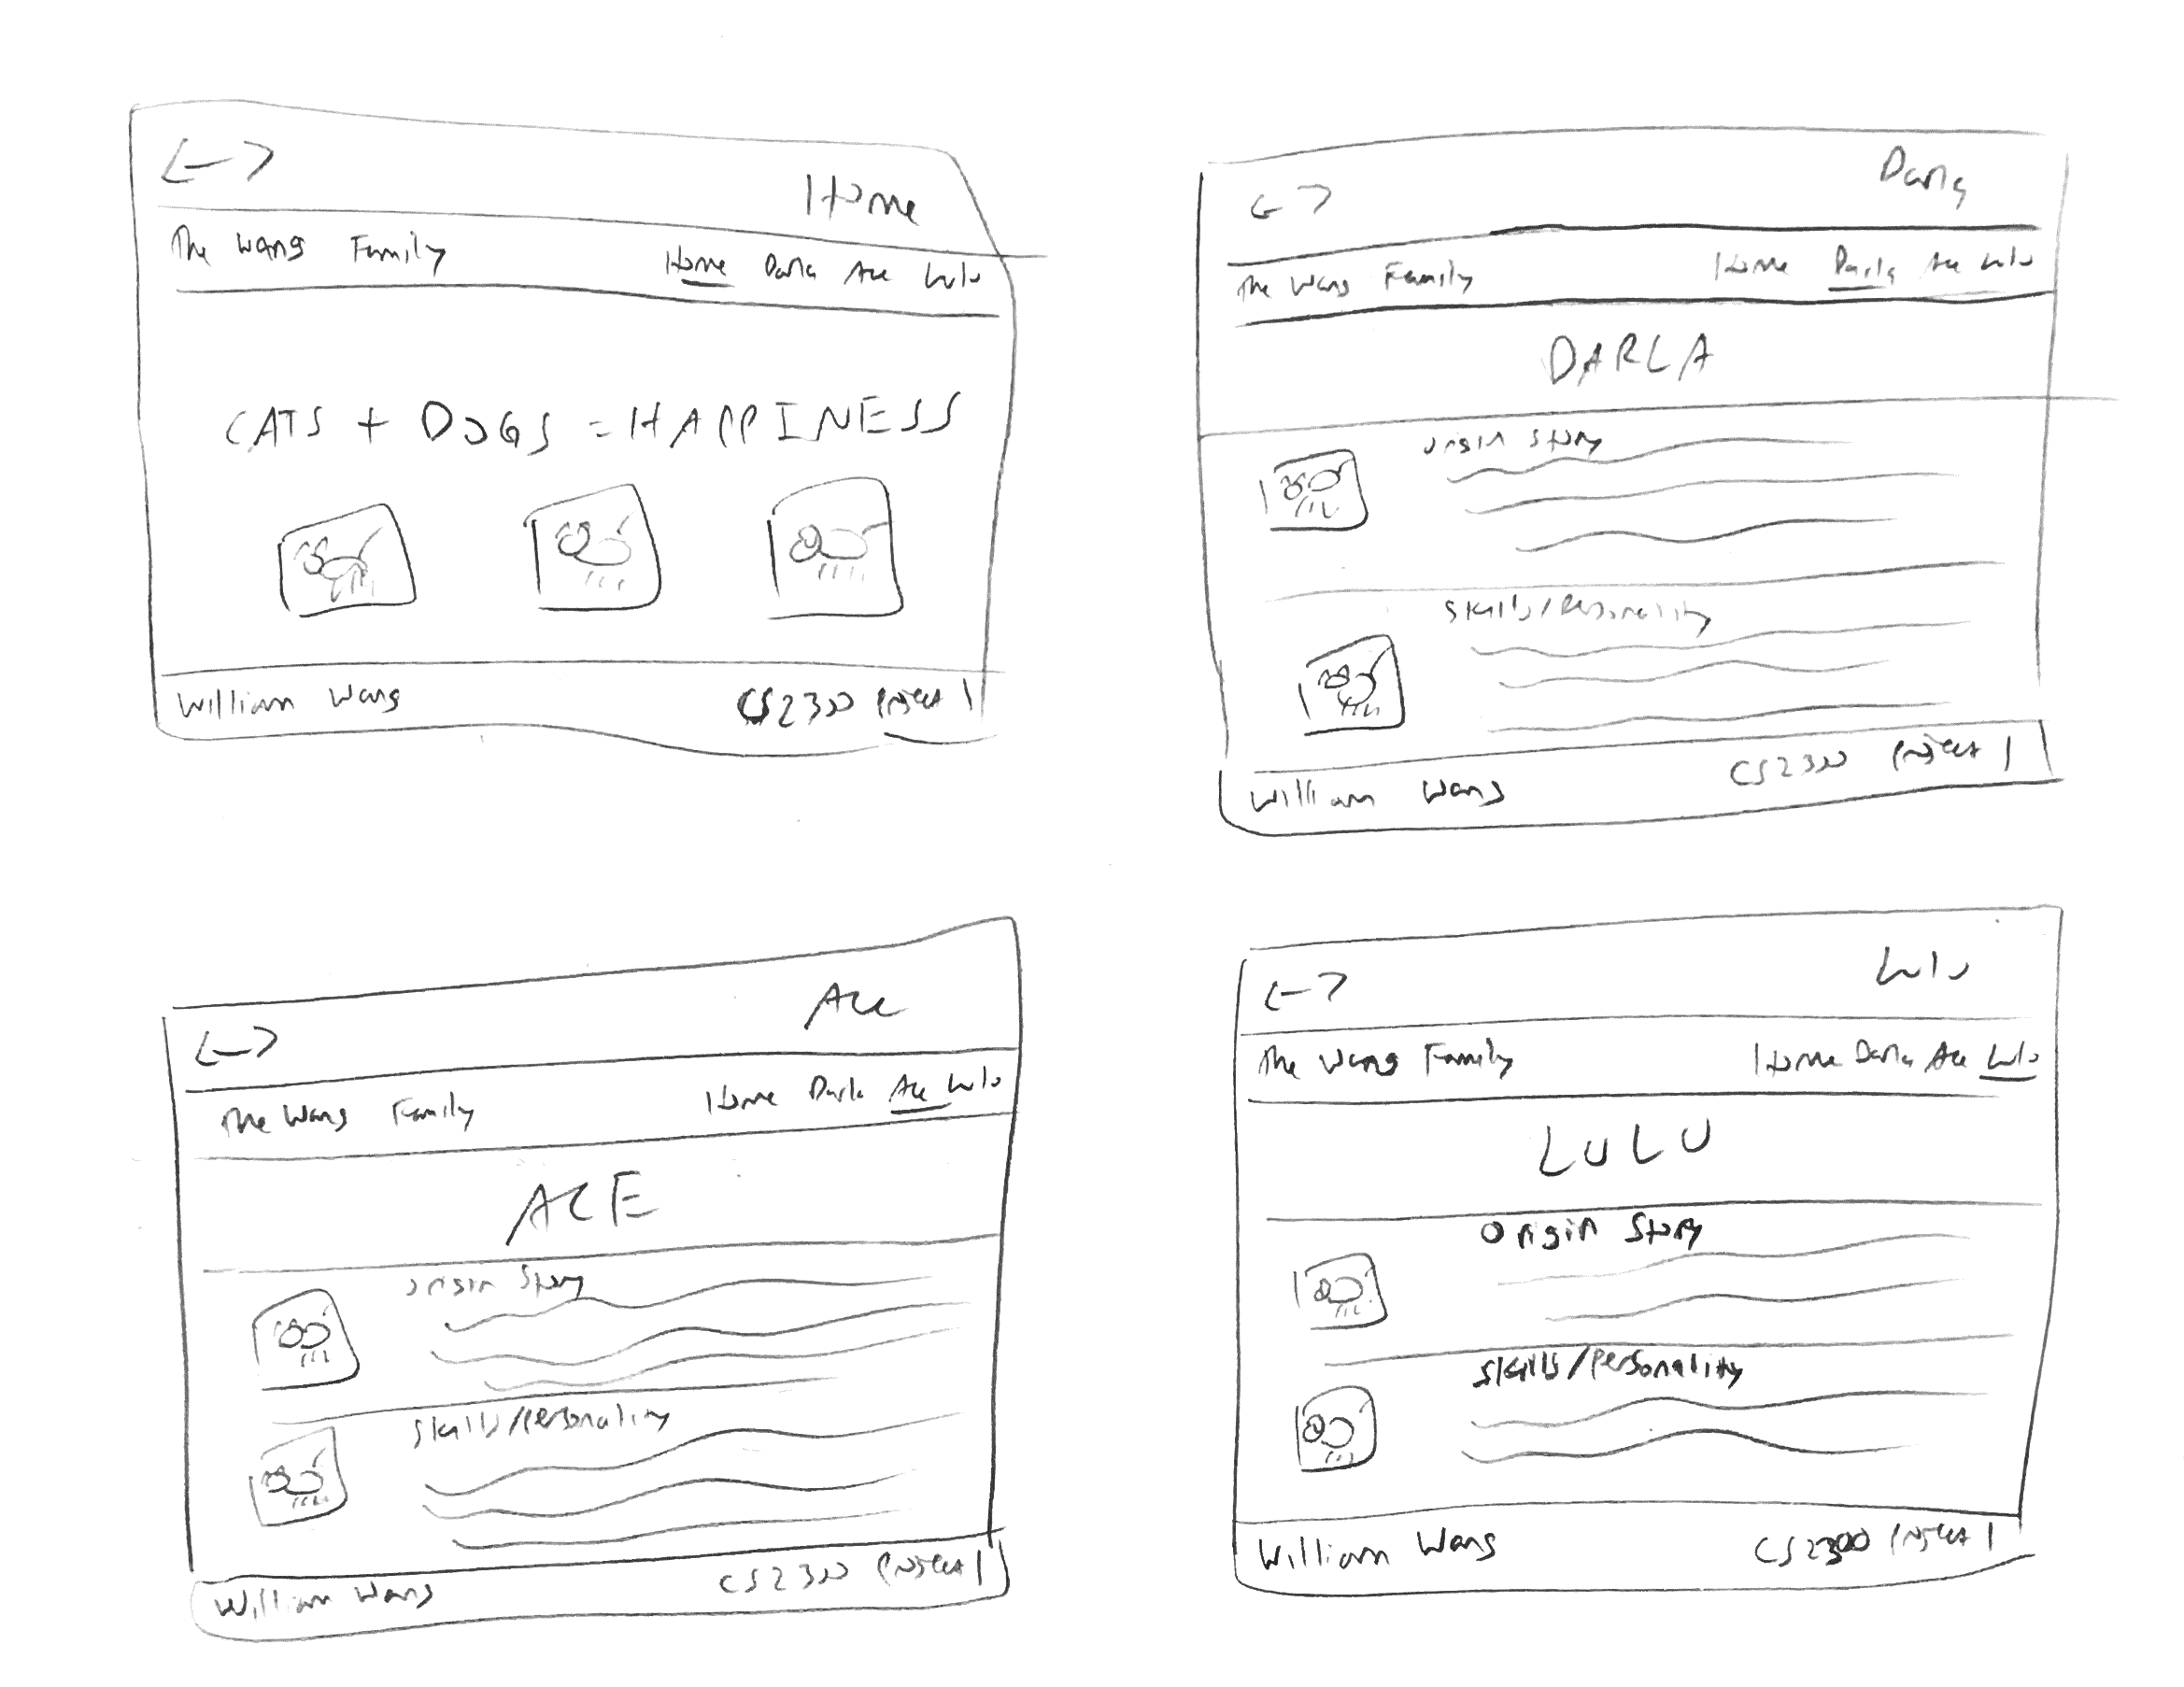 Home
The Wang Family Home Darla Ace Lulu
CATS + DOGS = HAPPINESS
William Wang CS2300 Project 1
Darla
The Wang Family Home Darla Ace Lulu
DARLA
Origin Story
Skills/Personality
William Wang CS2300 Project 1
Ace
The Wang Family Home Darla Ace Lulu
ACE
Origin Story
Skills/Personality
William Wang CS2300 Project 1
Lulu
The Wang Family Home Darla Ace Lulu
LULU
Origin Story
Skills/Personality
William Wang CS2300 Project 1